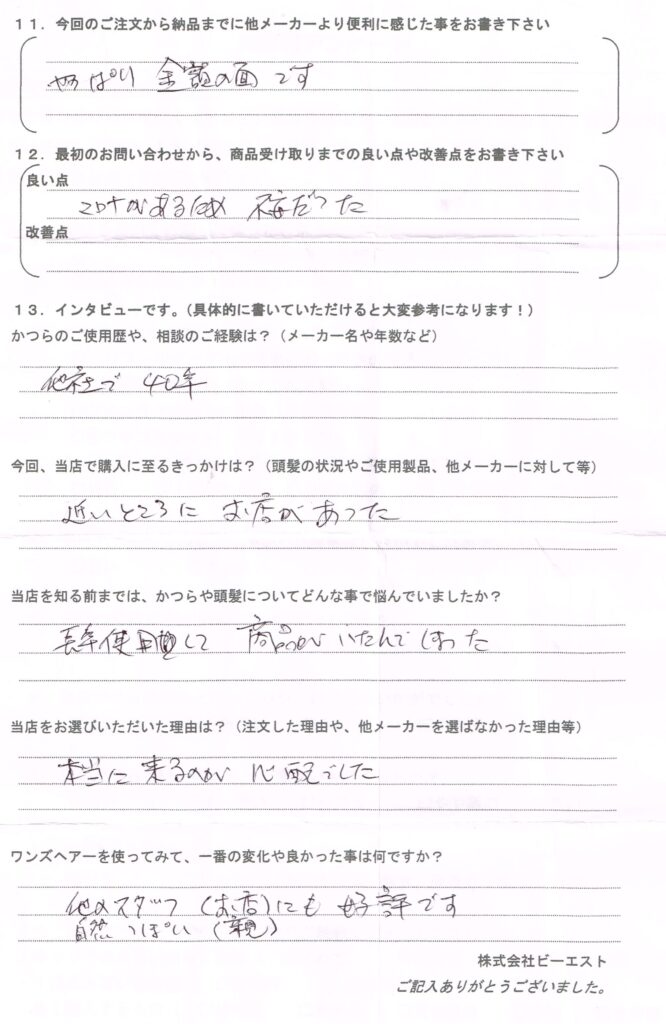 １１．今回のご注文から納品までに他メーカーより便利に感じた事をお書き下さい
やっぱり 金額の面です
１２．最初のお問い合わせから、商品受け取りまでの良い点や改善点をお書き下さい
良い点
コロナがあるため 不安だった
改善点
１３．インタビューです。（具体的に書いていただけると大変参考になります！）
かつらのご使用歴や、相談のご経験は？（メーカー名や年数など）
他社で 40年
今回、当店で購入に至るきっかけは？（頭髪の状況やご使用製品、他メーカーに対して等）
近いところに お店があった
当店を知る前までは、かつらや頭髪についてどんな事で悩んでいましたか？
長年使用して 商品がいたんでしまった
当店をお選びいただいた理由は？（注文した理由や、他メーカーを選ばなかった理由等）
本当に来るのか 心配でした
ワンズヘアーを使ってみて、一番の変化や良かった事は何ですか？
他のスタッフ（お店）にも 好評です
自然っぽい（親）
株式会社ビーエスト
ご記入ありがとうございました。